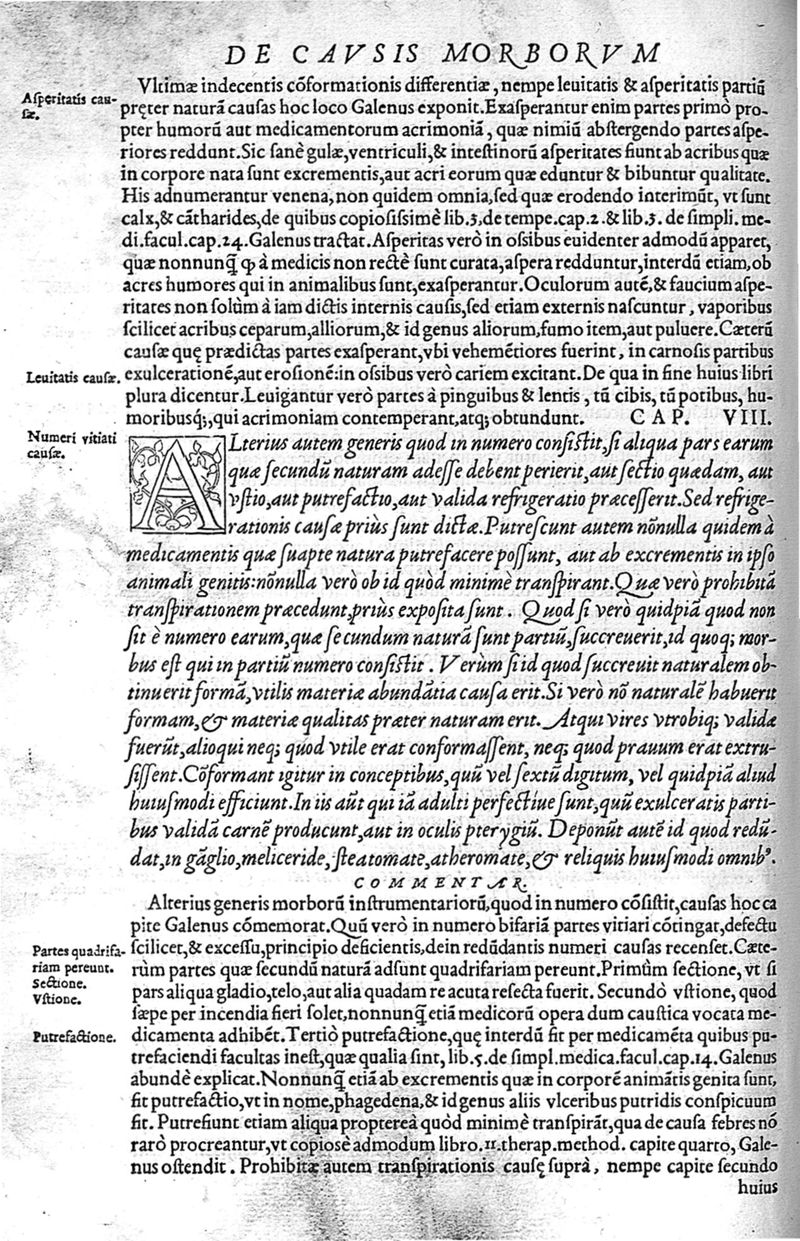 DE CAVSIS MORBORVM
Vltimæ indecentis cõformationis differentiæ, nempe leuitatis & asperitatis partiũ
Asperitatis cau-
sæ.
pręter naturã causas hoc loco Galenus exponit. Exasperantur enim partes primò pro-
pter humorũ aut medicamentorum acrimoniã, quæ nimiũ abstergendo partes aspe-
riores reddunt. Sic sanè gulæ, ventriculi, & intestinorũ asperitates fiunt ab acribus quæ
in corpore nata sunt excrementis, aut acri eorum quæ eduntur & bibuntur qualitate.
His adnumerantur venena, non quidem omnia, sed quæ erodendo interimũt, vt sunt
calx, & cãtharides, de quibus copiosissimè lib. 3. de tempe. cap. 2. & lib. 3. de simpli. me-
di. facul. cap. 24. Galenus tractat. Asperitas verò in ossibus euidenter admodũ apparet,
quæ nonnunq̃ ꝙ à medicis non rectè sunt curata, aspera redduntur, interdũ etiam, ob
acres humores qui in animalibus sunt, exasperantur. Oculorum autẽ, & faucium aspe-
ritates non solùm à iam dictis internis causis, sed etiam externis nascuntur, vaporibus
scilicet acribus ceparum, alliorum, & id genus aliorum, fumo item, aut puluere. Cæterũ
causæ quę prædictas partes exasperant, vbi vehemẽtiores fuerint, in carnosis partibus
Leuitatis causæ.
exulcerationẽ, aut erosionẽ: in ossibus verò cariem excitant. De qua in fine huius libri
plura dicentur. Leuigantur verò partes à pinguibus & lentis, tũ cibis, tũ potibus, hu-
moribusq́;, qui acrimoniam contemperant, atq; obtundunt. CAP. VIII.
Numeri vitiati
causæ.
ALterius autem generis quod in numero consistit, si aliqua pars earum
quæ secundũ naturam adesse debent perierit, aut sectio quædam, aut
vstio, aut putrefactio, aut valida refrigeratio præcesserit. Sed refrige-
rationis causæ priùs sunt dictæ. Putrescunt autem nõnulla quidem à
medicamentis quæ suapte natura putrefacere possunt, aut ab excrementis in ipso
animali genitis: nõnulla verò ob id quòd minimè transpirant. Quæ verò prohibitã
transpirationem præcedunt, priùs exposita sunt. Quod si verò quidpiã quod non
sit è numero earum, quæ secundum naturã sunt partiũ, succreuerit, id quoq; mor-
bus est qui in partiũ numero consistit. Verùm si id quod succreuit naturalem ob-
tinuerit formã, vtilis materiæ abundãtia causa erit. Si verò nõ naturalẽ habuerit
formam, & materiæ qualitas præter naturam erit. Atqui vires vtrobiq; validæ
fuerũt, alioqui neq; quod vtile erat conformassent, neq; quod prauum erat extru-
sissent. Cõformant igitur in conceptibus, quũ vel sextũ digitum, vel quidpiã aliud
huiusmodi efficiunt. In iis aũt qui iã adulti perfectíue sunt, quũ exulceratis parti-
bus validã carnẽ producunt, aut in oculis pterygiũ. Deponũt autẽ id quod redũ-
dat, in gãglio, meliceride, steatomate, atheromate, & reliquis huiusmodi omnibꝰ.
COMMENTAR.
Alterius generis morborũ instrumentariorũ, quod in numero cõsistit, causas hoc ca
pite Galenus cõmemorat. Quũ verò in numero bifariã partes vitiari cõtingat, defectu
Partes quadrifa-
riam pereunt.
Sectione.
Vstione.
scilicet, & excessu, principio deficientis, dein redũdantis numeri causas recenset. Cæte-
rùm partes quæ secundũ naturã adsunt quadrifariam pereunt. Primùm sectione, vt si
pars aliqua gladio, telo, aut alia quadam re acuta resecta fuerit. Secundò vstione, quod
sæpe per incendia fieri solet, nonnunq̃ etiã medicorũ opera dum caustica vocata me-
Putrefactione.
dicamenta adhibẽt. Tertiò putrefactione, quę interdũ fit per medicamẽta quibus pu-
trefaciendi facultas inest, quæ qualia sint, lib. 5. de simpl. medica. facul. cap. 14. Galenus
abundè explicat. Nonnunq̃ etiã ab excrementis quæ in corporè animãtis genita sunt,
fit putrefactio, vt in nome, phagedena, & id genus aliis vlceribus putridis conspicuum
fit. Putrefiunt etiam aliqua proptereà quòd minimè transpirãt, qua de causa febres nõ
rarò procreantur, vt copiosè admodum libro. 11. therap. method. capite quarto, Gale-
nus ostendit. Prohibitæ autem transpirationis causę suprà, nempe capite secundo
huius